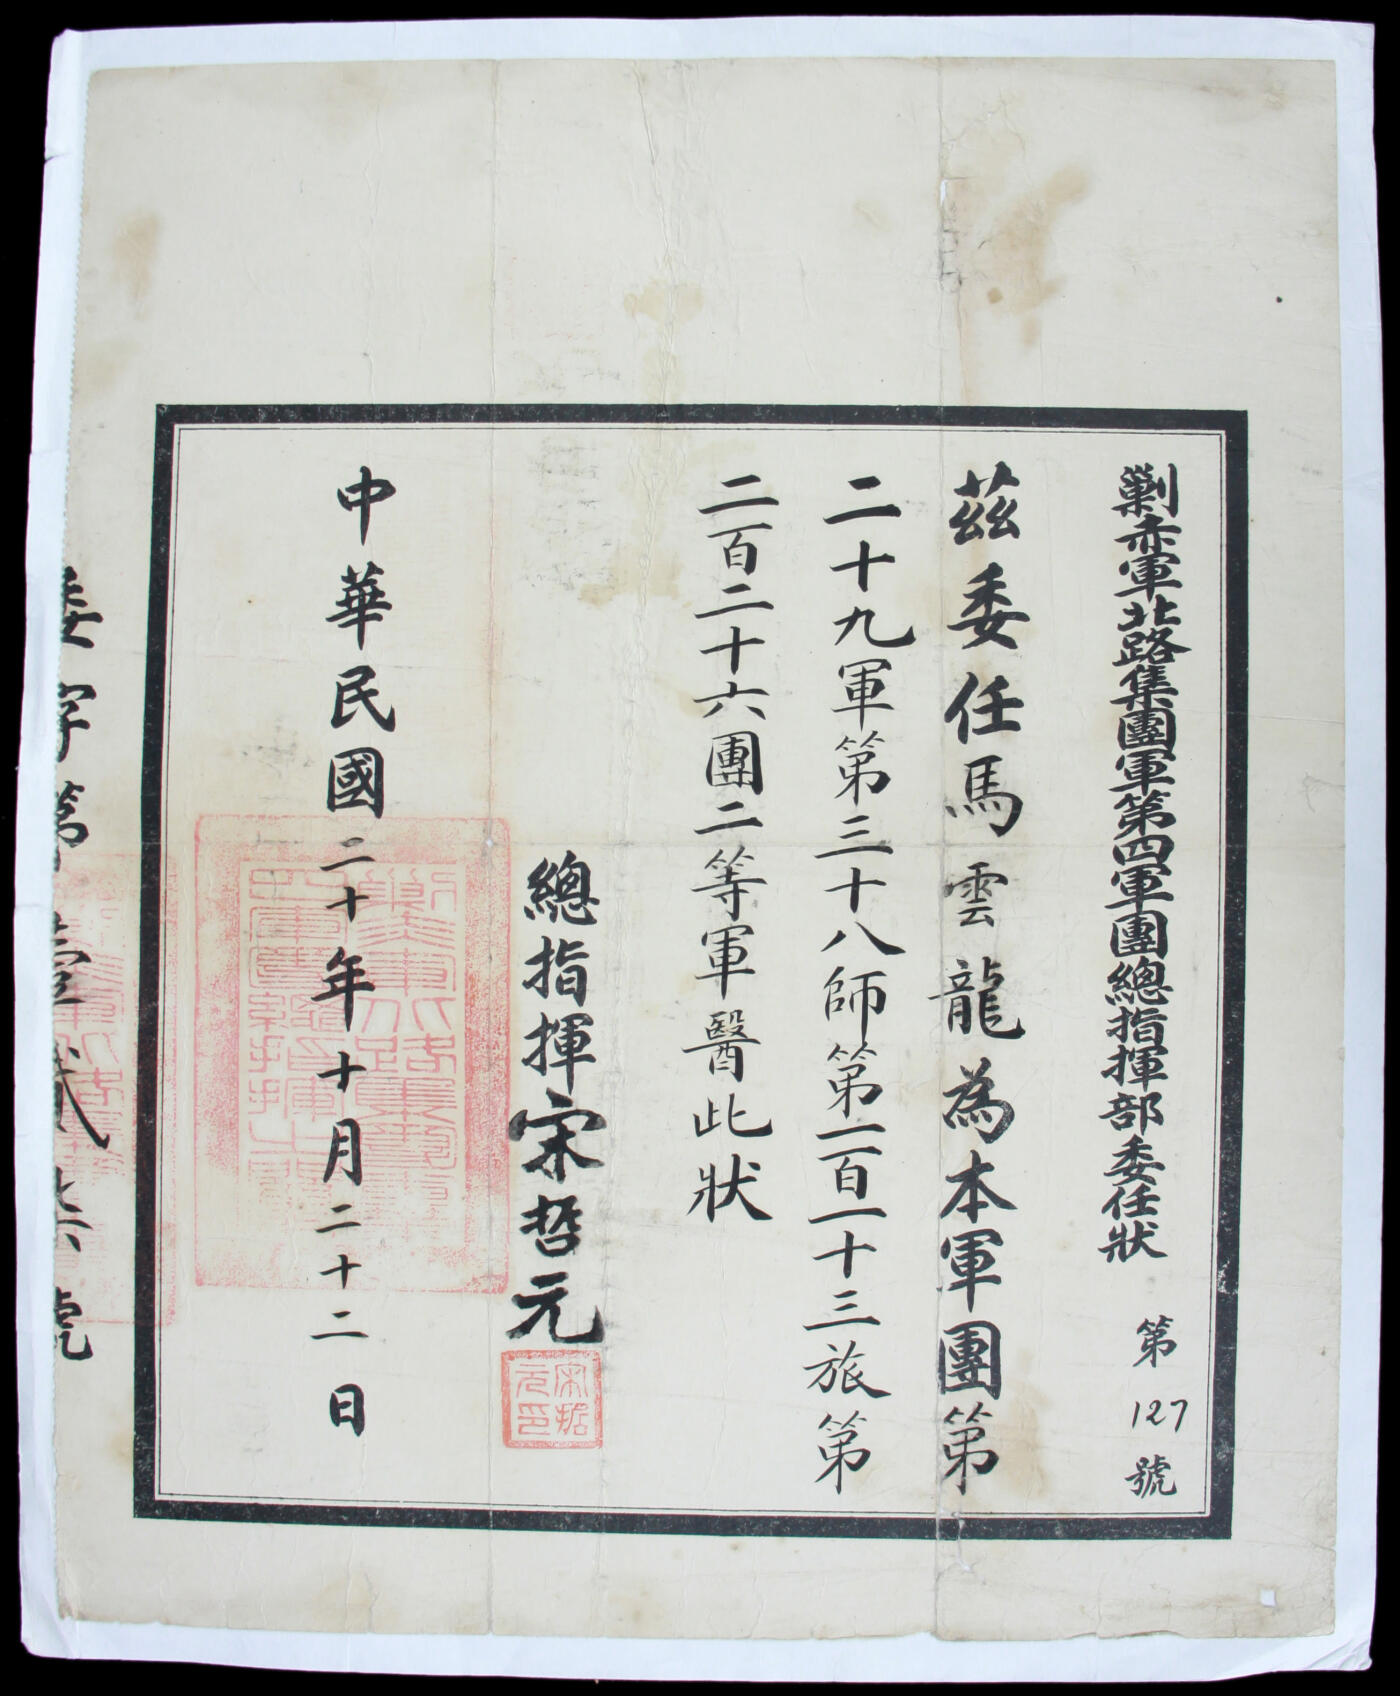 剿赤軍北路集團軍第四軍團總指揮部委任狀 第127號
茲委任馬雲龍為本軍團第
二十九軍第三十八師第一百一十三旅第
二百二十六團二等軍醫此狀
總指揮宋哲元
宋哲元印
中華民國二十年十月二十二日
委字第壹貳柒號